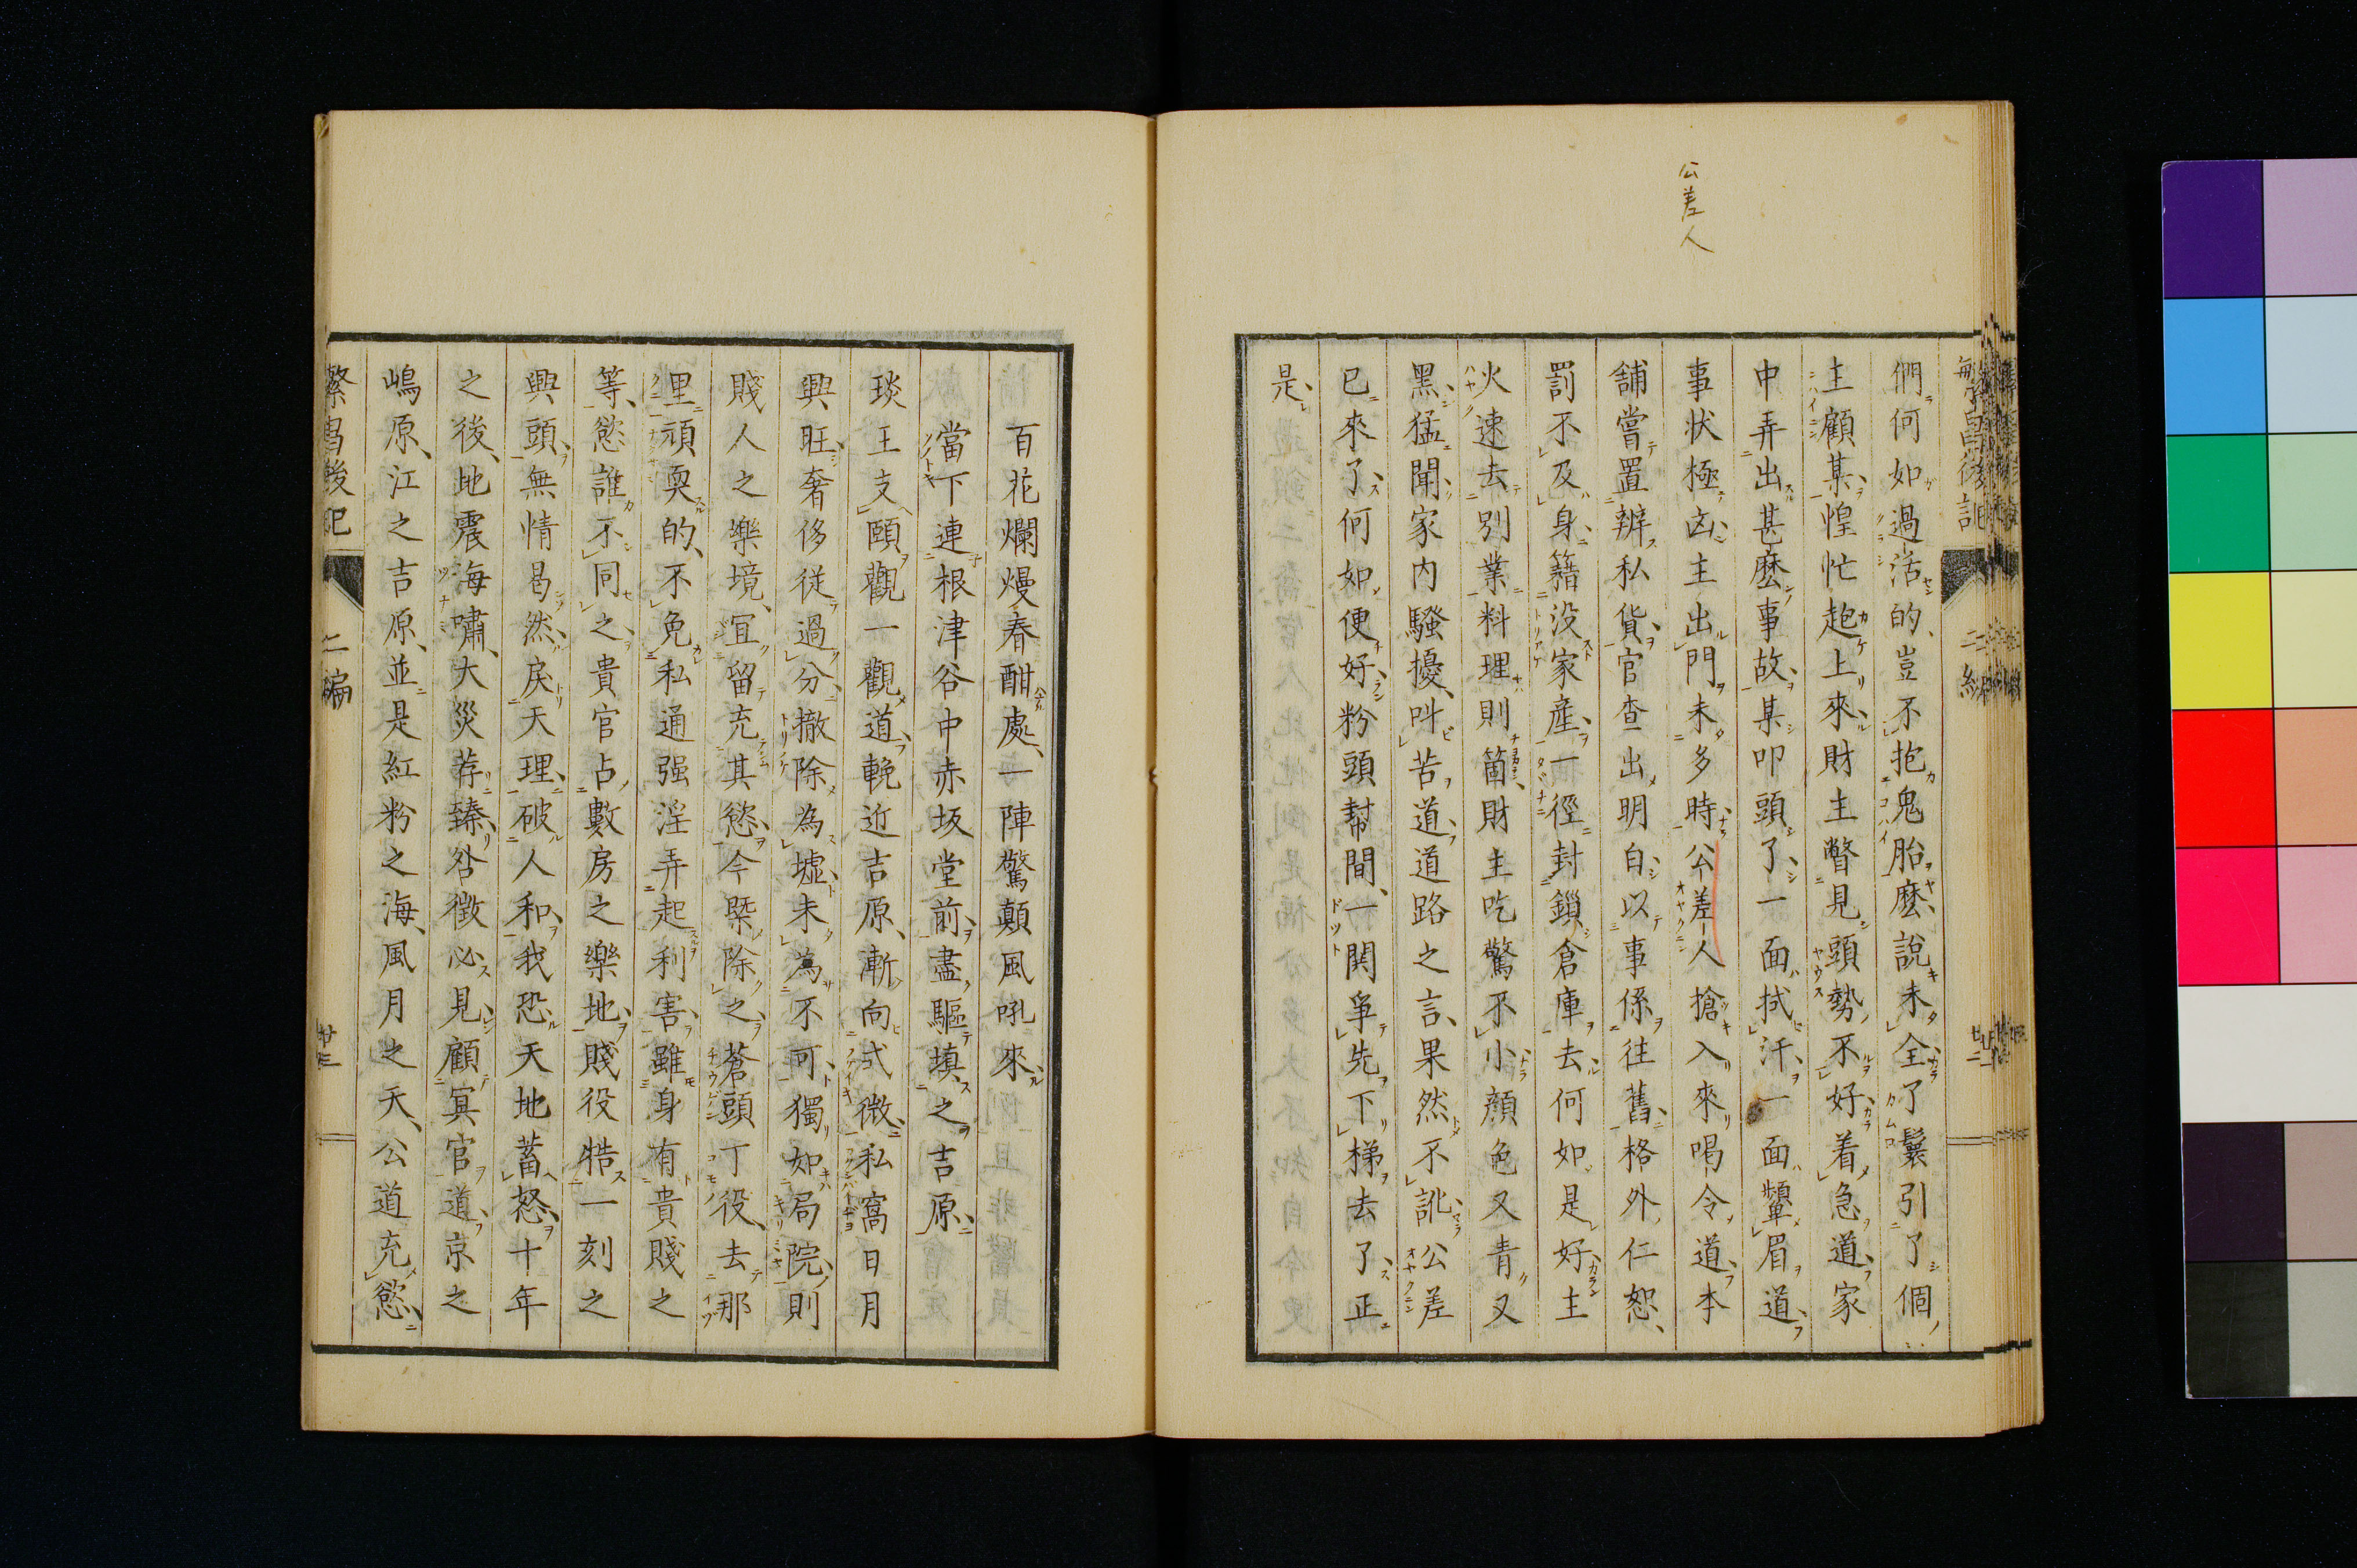 公差人
繁昌後記
二編
廿二
們何如過活的、豈不抱鬼胎麼、說未全了、鬟引了個
主顧某、惶忙趂上來、財主瞥見頭勢不好着、急道、家
中弄出甚麼事故、某叩頭了、一面拭汗、一面顰眉道、
事状極凶、主出門未多時、公差人搶入來喝令道、本
舗嘗置辨私貨、官查出明白、以事係往舊、格外仁恕、
罰不及身、籍没家産、一徑封鎻倉庫去、何如是好、主
火速去別業料理則箇、財主吃驚不小、顔色又青又
黑、猛聞家内騷擾、叫苦道、道路之言、果然不訛、公差
已來了、何如便好、粉頭幇間、一鬨爭先下梯去了、正
是、
百花爛熳春酣處、一陣驚顛風吼來、
當下連根津谷中赤坂堂前、盡驅填之吉原、
琰王支頤觀一觀道、輓近吉原、漸向式微、私窩日月
興旺、奢侈從過分、撤除為墟、未為不可、獨如局院、則
賤人之樂境、宜留充其慾、今槩除之、蒼頭丁役、去那
里頑耍的、不免私通强淫弄起利害、雖身有貴賤之
等、慾誰不同之、貴官占數房之樂地、賤役牿一刻之
興頭、無情曷然、戾天理、破人和、我恐天地蓄怒、十年
之後、地震海嘯、大災荐臻、咎徴必見、顧冥官道、京之
嶋原、江之吉原、並是紅粉之海、風月之天、公道充慾、
繁昌後記
二編
廿三